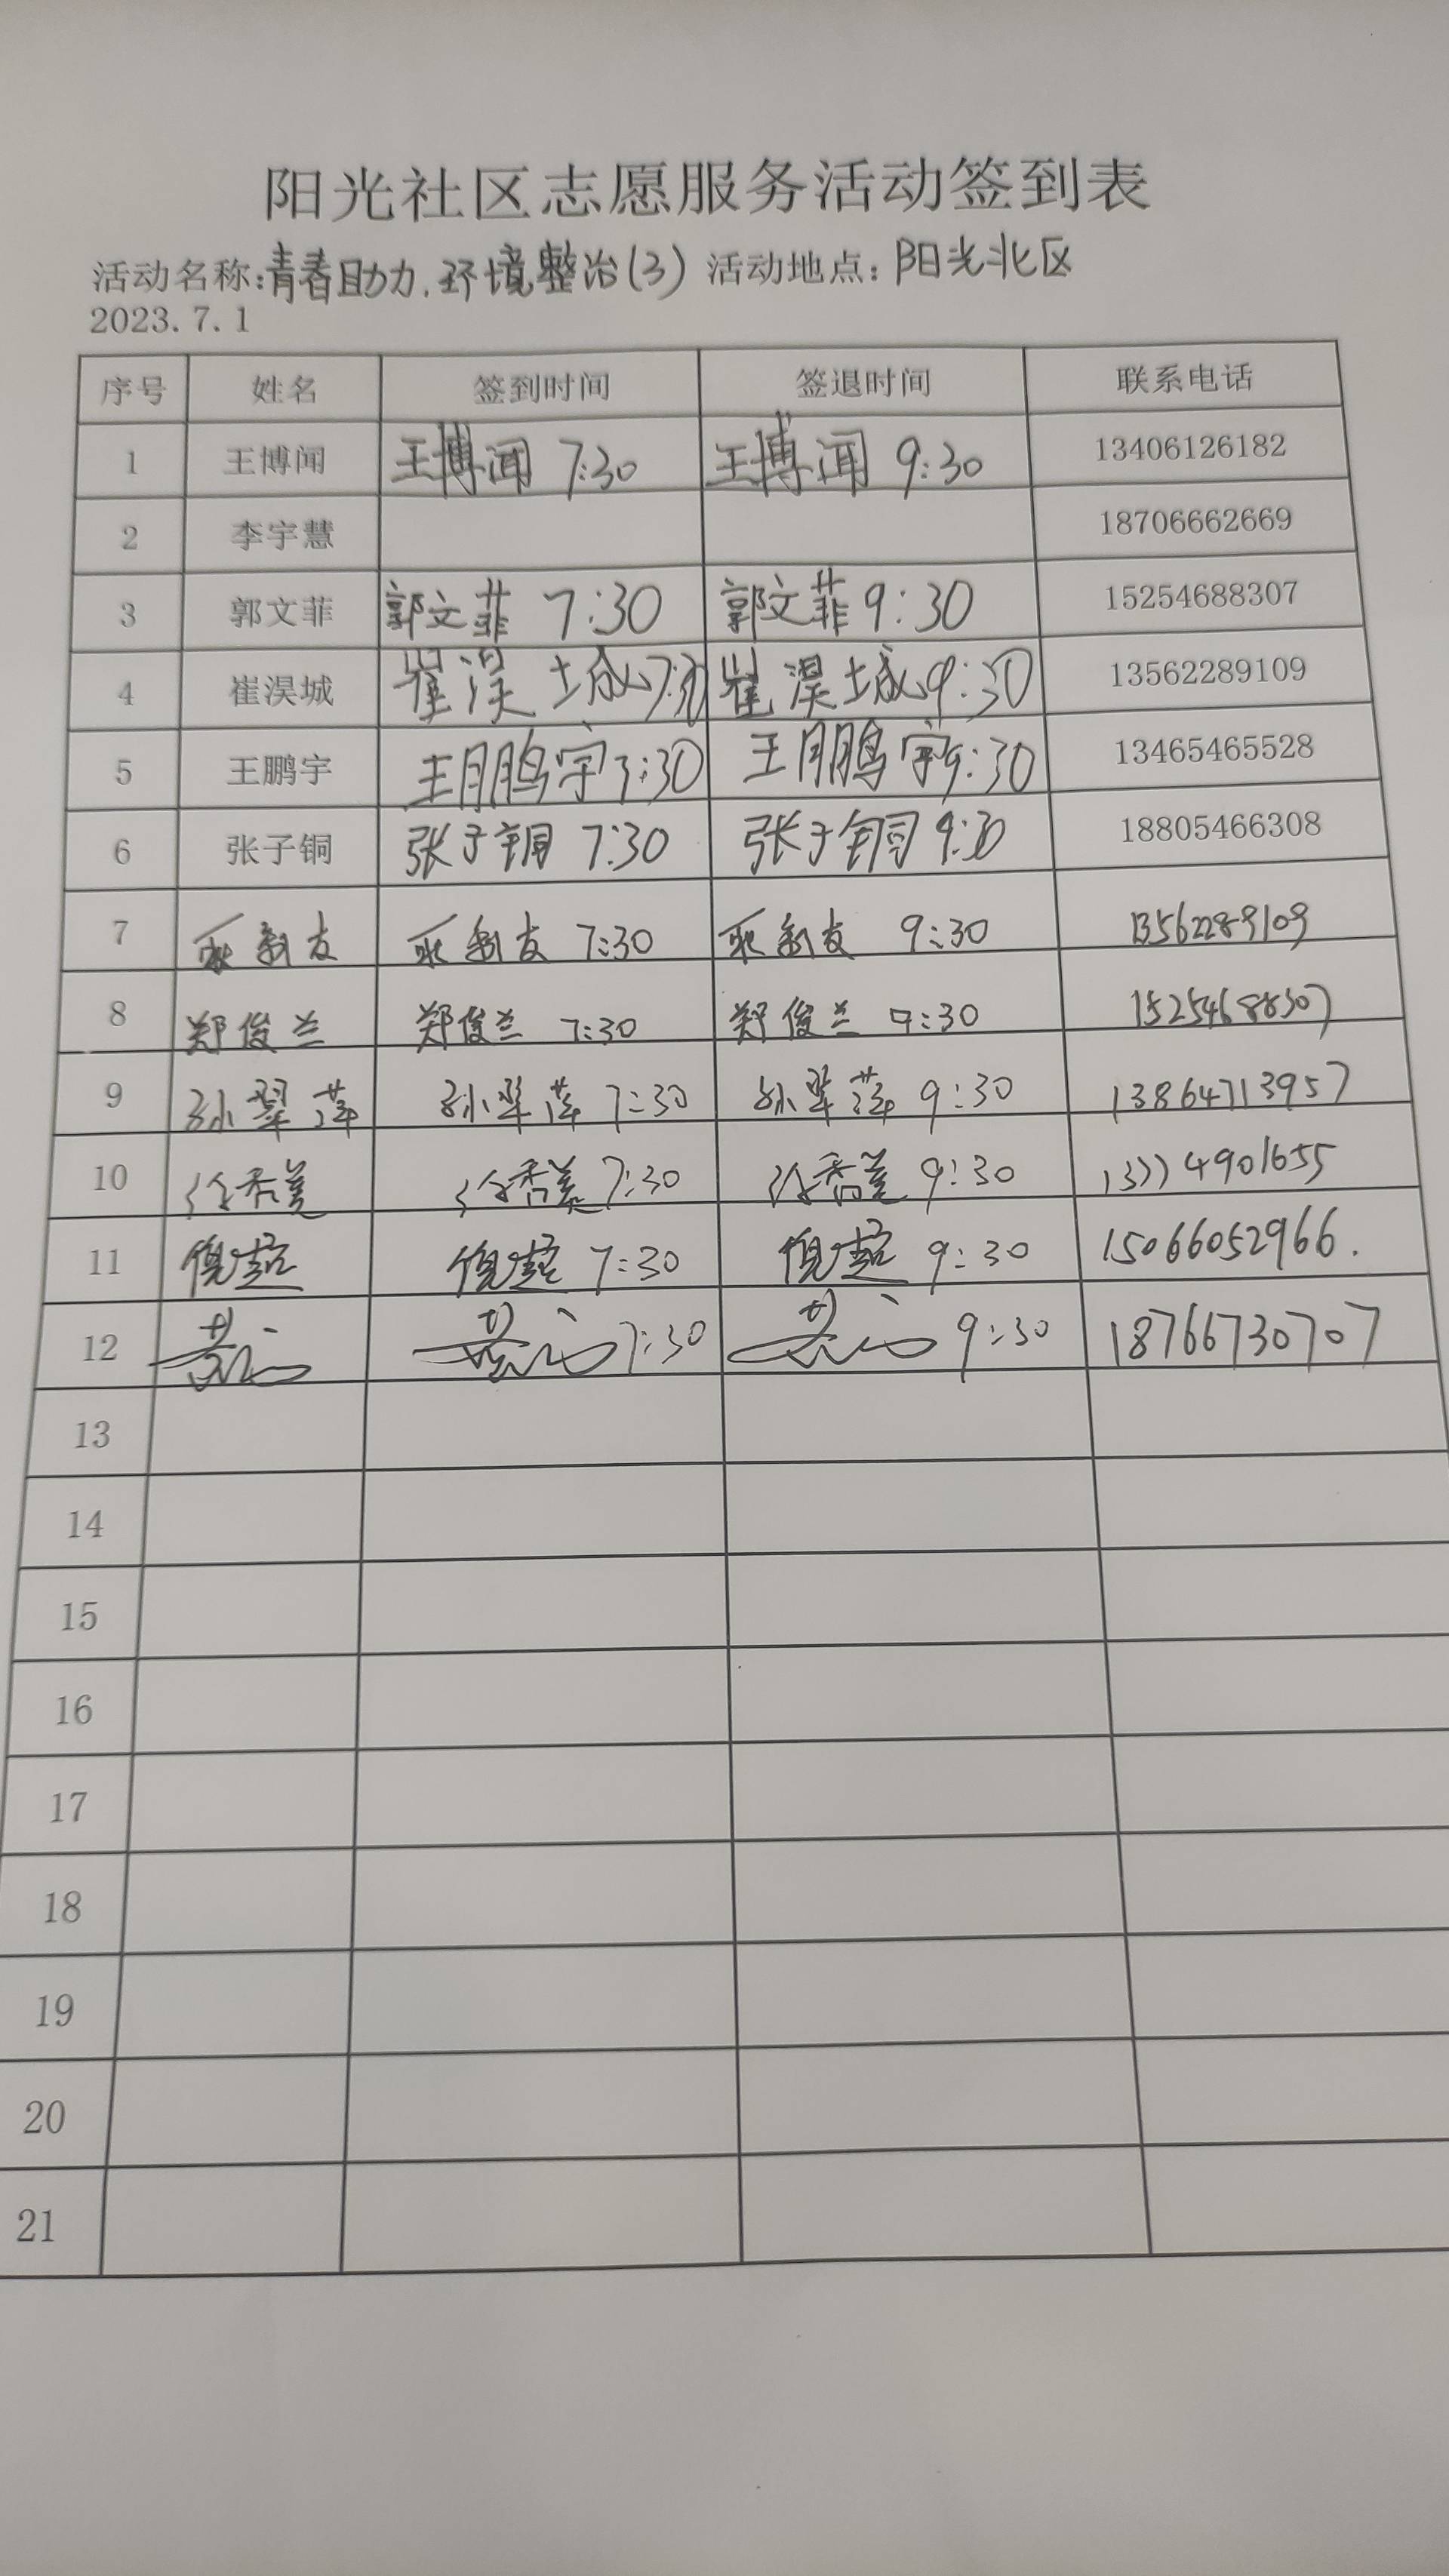 阳光社区志愿服务活动签到表
活动名称:青春助力.环境整治(3) 活动地点: 阳光北区
2023.7.1
序号 姓名 签到时间 签退时间 联系电话
1 王博闻 王博闻 7:30 王博闻 9:30 13406126182
2 李宇慧 18706662669
3 郭文菲 郭文菲 7:30 郭文菲 9:30 15254688307
4 崔淏城 崔淏城 7:30 崔淏城 9:30 13562289109
5 王鹏宇 王鹏宇 7:30 王鹏宇 9:30 13465465528
6 张子铜 张子铜 7:30 张子铜 9:30 18805466308
7 7:30 9:30 13562289109
8 郑俊兰 郑俊兰 7:30 郑俊兰 9:30 15254688307
9 孙翠萍 孙翠萍 7:30 孙翠萍 9:30 13864713957
10 徐香美 徐香美 7:30 徐香美 9:30 13774901655
11 倪超 倪超 7:30 倪超 9:30 15066052966.
12 7:30 9:30 18766730707
13
14
15
16
17
18
19
20
21